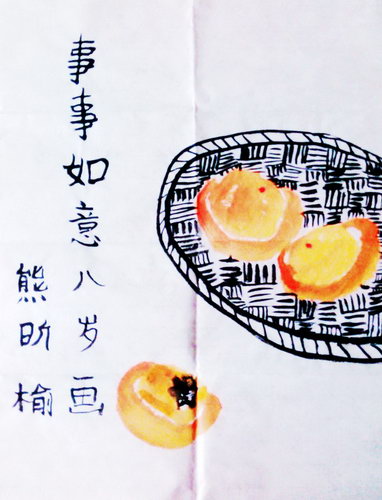 事事如意八岁画
熊昕榆